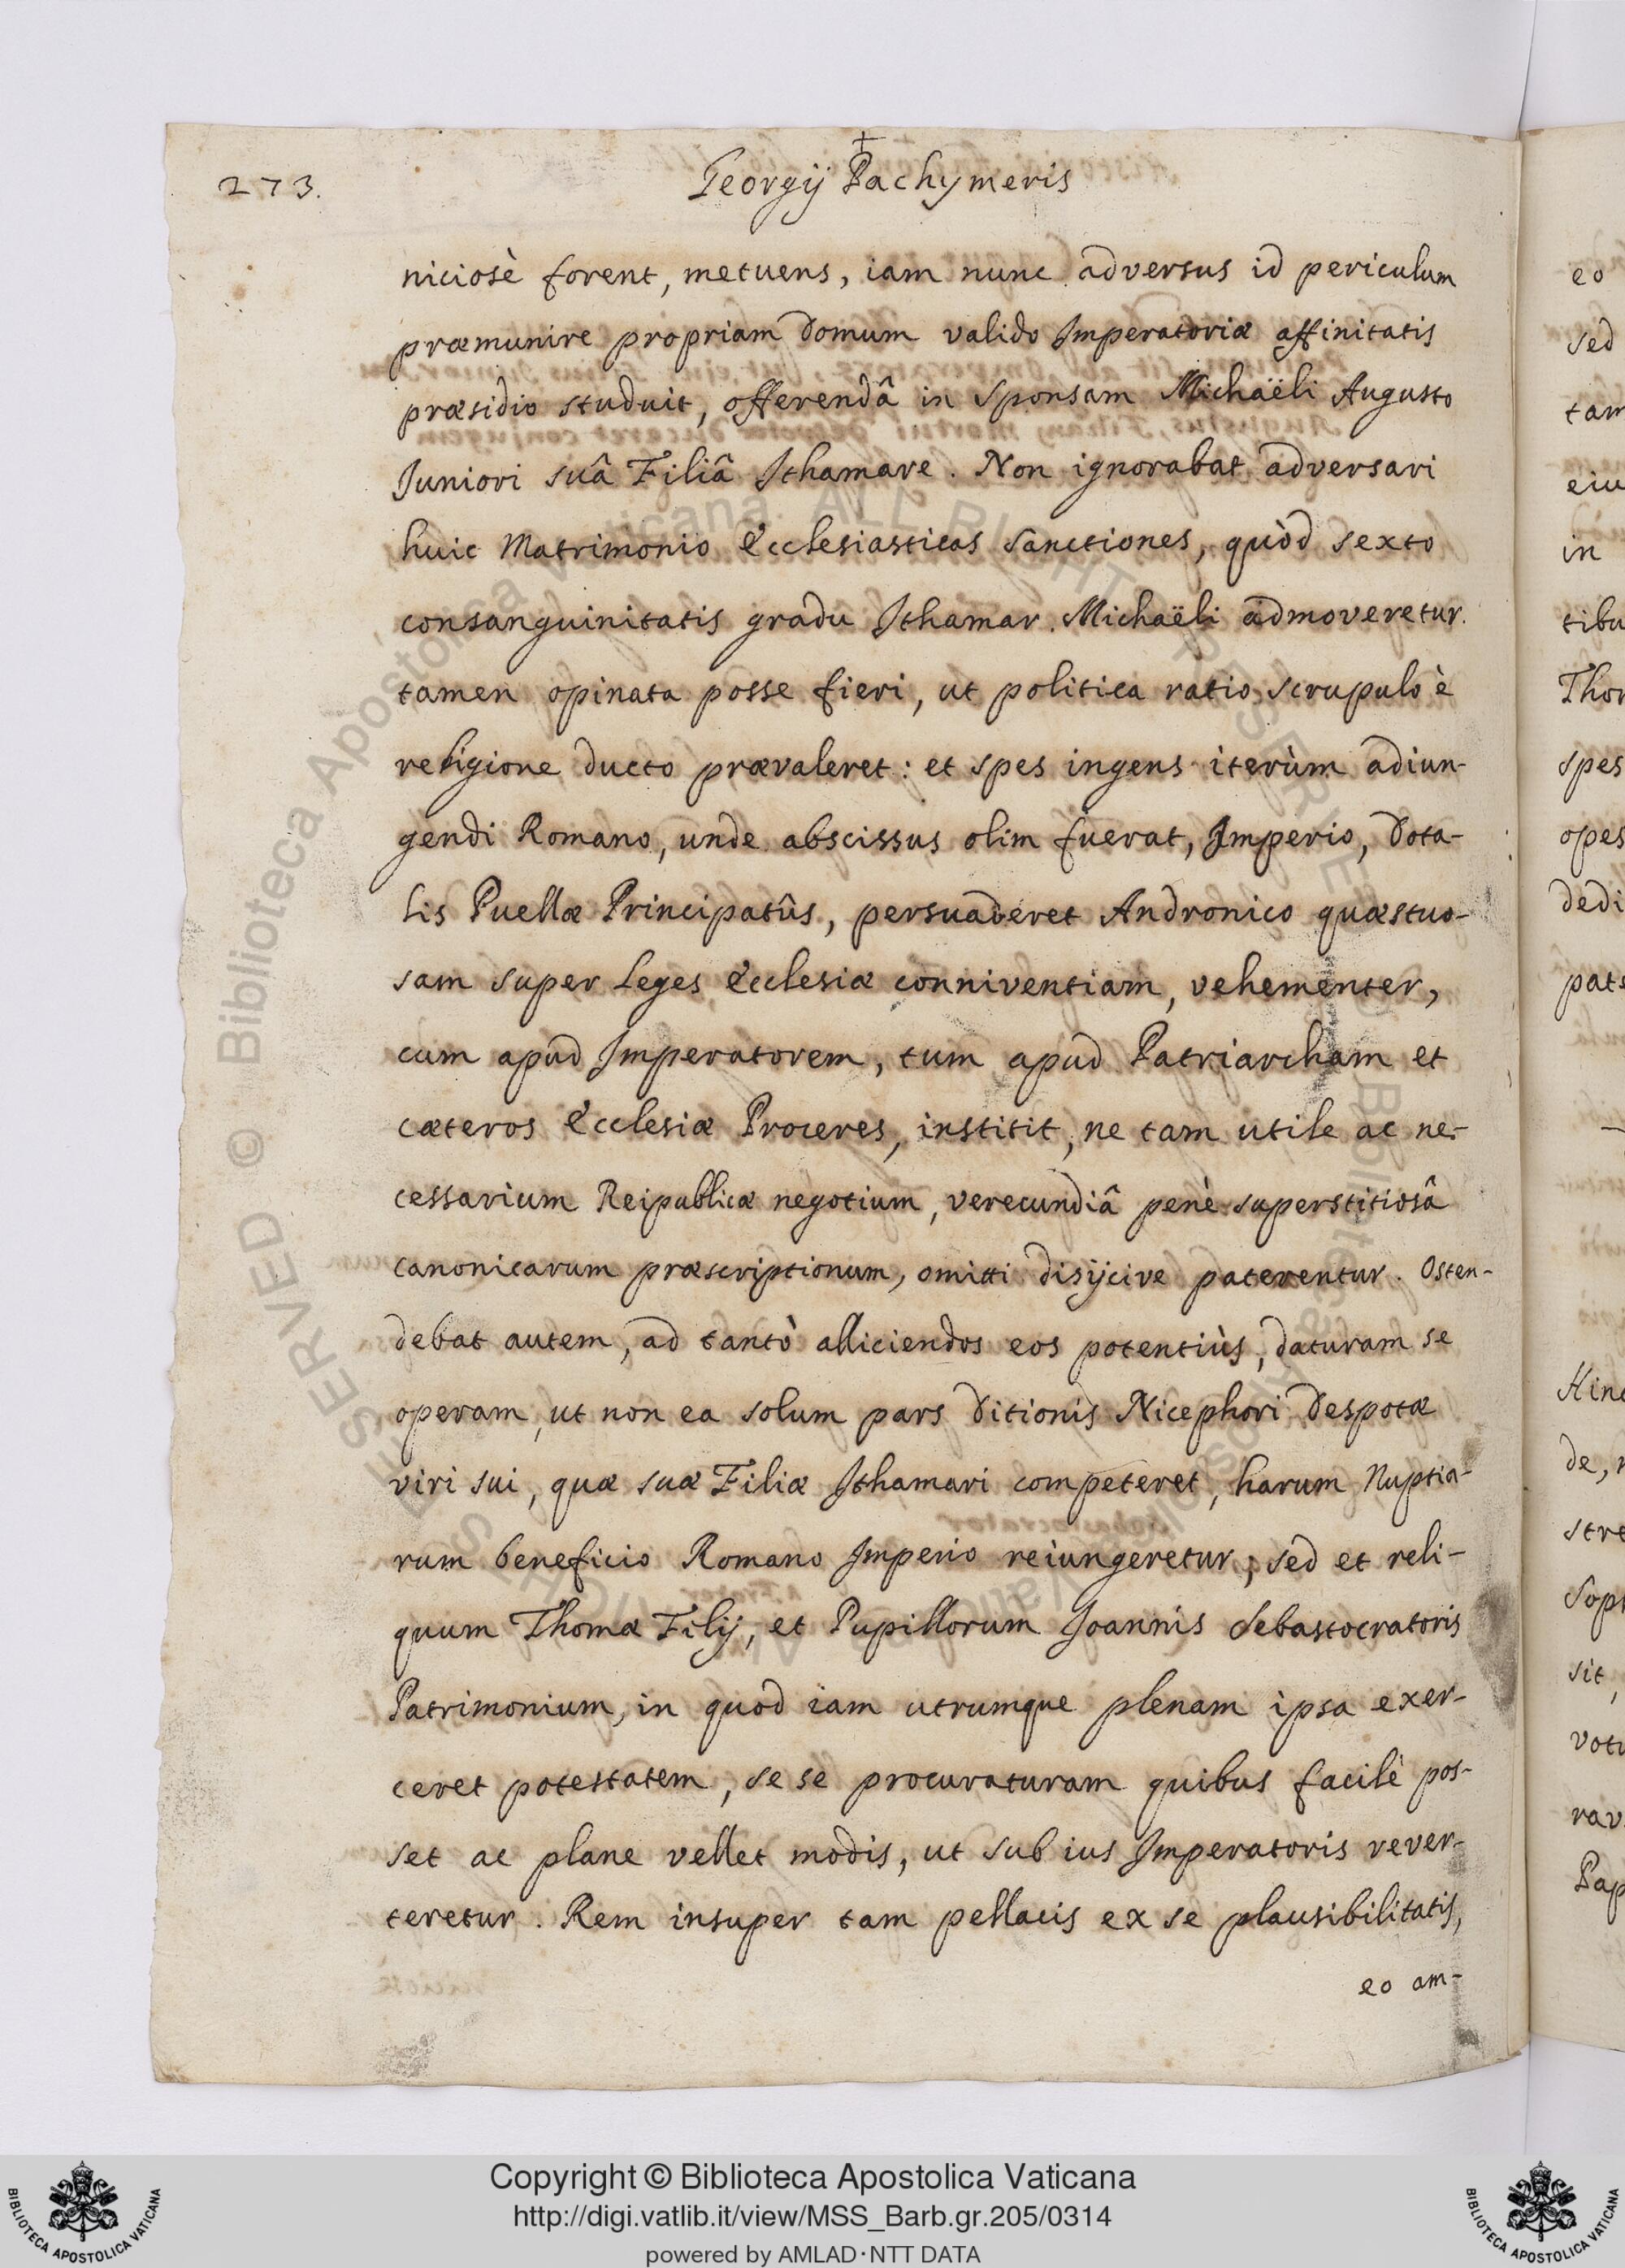 273.
†
Georgij Pachymeris
niciosè forent, metuens, iam nunc adversus id periculum
præmunire propriam Domum valido Imperatoriæ affinitatis
præsidio studuit, offerendâ in Sponsam Michaëli Augusto
Juniori suâ Filiâ Ithamare. Non ignorabat adversari
huic Matrimonio Ecclesiasticas Sanctiones, quòd sexto
consanguinitatis gradu Ithamar Michaëli admoveretur.
tamen opinata posse fieri, ut politica ratio scrupulo è
religione ducto prævaleret: et spes ingens iterùm adiun-
gendi Romano, unde abscissus olim fuerat, Imperio, Dota-
lis Puellæ Principatûs, persuaderet Andronico quæstuo-
sam super Leges Ecclesiæ conniventiam, vehementer,
cum apud Imperatorem, tum apud Patriarcham et
cæteros Ecclesiæ Proceres, institit, ne tam utile ac ne-
cessarium Reipublicæ negotium, verecundiâ penè superstitiosâ
canonicarum præscriptionum, omitti disijcive paterentur. Osten-
debat autem, ad tantò alliciendos eos potentiùs, daturam se
operam, ut non ea solum pars Ditionis Nicephori Despotæ
viri sui, quæ suæ Filiæ Ithamari competeret, harum Nuptia-
rum beneficio Romano Imperio reiungeretur; sed et reli-
quum Thomæ Filij, et Pupillorum Joannis Sebastocratoris
Patrimonium, in quod iam utrumque plenam ipsa exer-
ceret potestatem, se se procuraturam quibus facilè pos-
set ac plane vellet modis, ut sub ius Imperatoris rever-
teretur. Rem insuper tam pellacis ex se plausibilitatis,
eo am-
eo
sed
in
Thom
spes
opes
dedi
de,
sit,
Copyright © Biblioteca Apostolica Vaticana
http://digi.vatlib.it/view/MSS_Barb.gr.205/0314
powered by AMLAD·NTT DATA
BIBLIOTECA APOSTOLICA VATICANA
BIBLIOTECA APOSTOLICA VATICANA